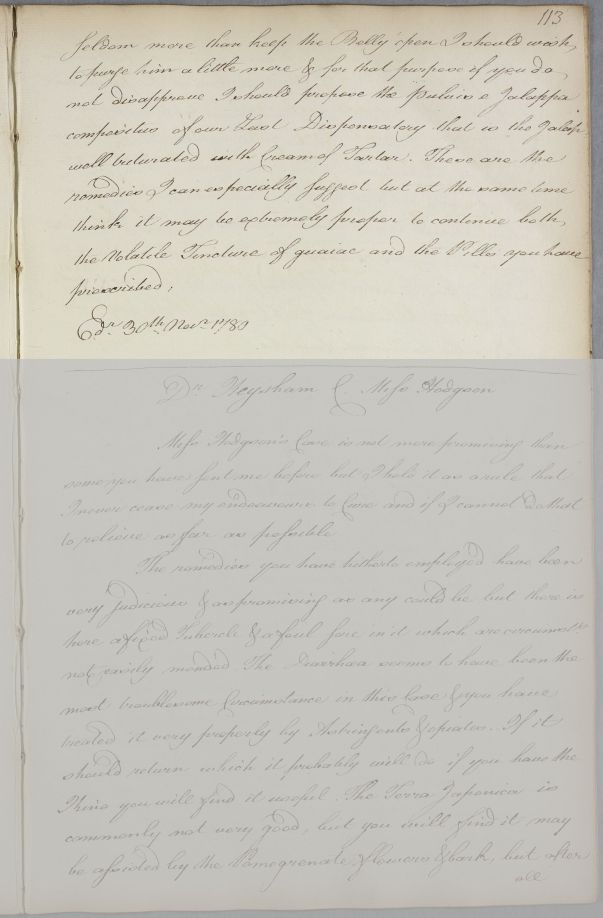 113
seldom more than keep the Belly open I should wish,
to purge him a little more & for that purpose if you do
not disapprove I should propose the Pulvis e Jalappa
compositus of our Last Dispensatory that is the Jalap
well triturated with Cream of Tartar. These are the
remedies I can especially suggest but at the same time
think it may be extremely proper to continue both,
the Volatile Tincture of guaiac and the Pills you have
prescribed,
Edr. 30th Novr. 1789
Dr Heysham C. Miss Hodgson
Miss Hodgson's Case is not more promising than
some you have sent me before but I hold it as a rule that
I never cease my endeavours to Cure and if I cannot do that
to relieve as far as possible
The remedies you have hitherto employed have been
very judicious & as promising as any could be but there is
here a fixed Tubercle & a foul sore in it which are circumsts.
not easily mended The Diarrhœa seems to have been the
most troublesome Circumstance in this Case & you have
treated it very properly by Astringents & opiates. If it
should return which it probably will do if you have the
Kino you will find it useful. The Terra Japonica is
commonly not very good, but you will find it may
be assisted by the Pomegrenate flowers & bark, but after
all